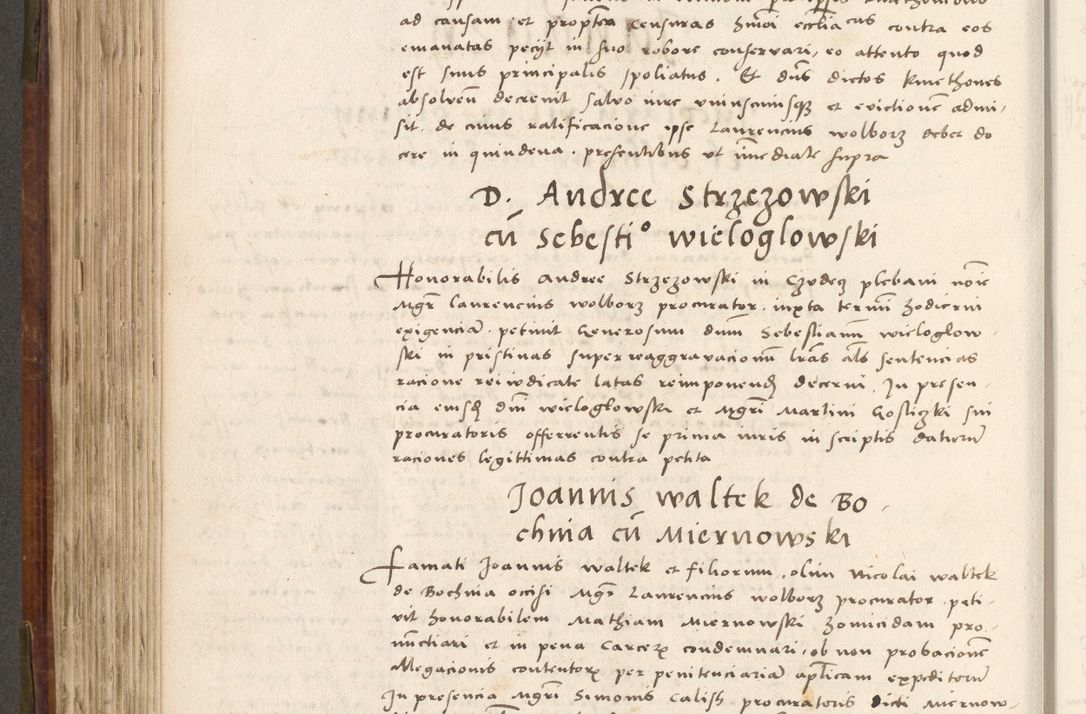 ad causam et propterea censuras hmoi eccliacas contra eos
emanatas peciit in suo robore conservari, eo attento quod
est suus principalis spoliatus. Et dns dictos kmethones
absolven decrevit salvo iure uniuscuiusq et evictione admi-
sit. de cuius ratificacione ipse Laurencius wolborz debet do
cere in quindena. presentibus ut immediate supra
D. Andree Strzezowski
cu Sebesti° wieloglowski
Honorabilis Andree Strzezowski in Czudecz plebani noie
Mgr Laurencius wolborz procurator iuxta termi hodierni
exigencia petivit Generosum dnm Sebestianu wieloglow-
ski in pristinas superreaggravacionu lras als sentencias
racione rei iudicate latas reimponend decerni. In presen-
cia eiusd dni wieloglowski et Mgri Martini Gosliczki sui
procuratoris offerrentis se prima iuris in scriptis daturu
raciones legittimas contra petita
Joannis waltek de Bo-
chnia cu Miernowski
Famati Joannis waltek et filiorum olim Nicolai waltek
de Bochnia occisi Mgr Laurencius wolborz procurator peti-
vit honorabilem Mathiam Miernowski homicidam pro-
nuctiari et in pena Carcerz condemnari, ob non probacione
Allegacionis contentorz per penitenciaria aplicam expeditoru
In presencia Mgri Simonis Calish procuratoris dicti Miernow-